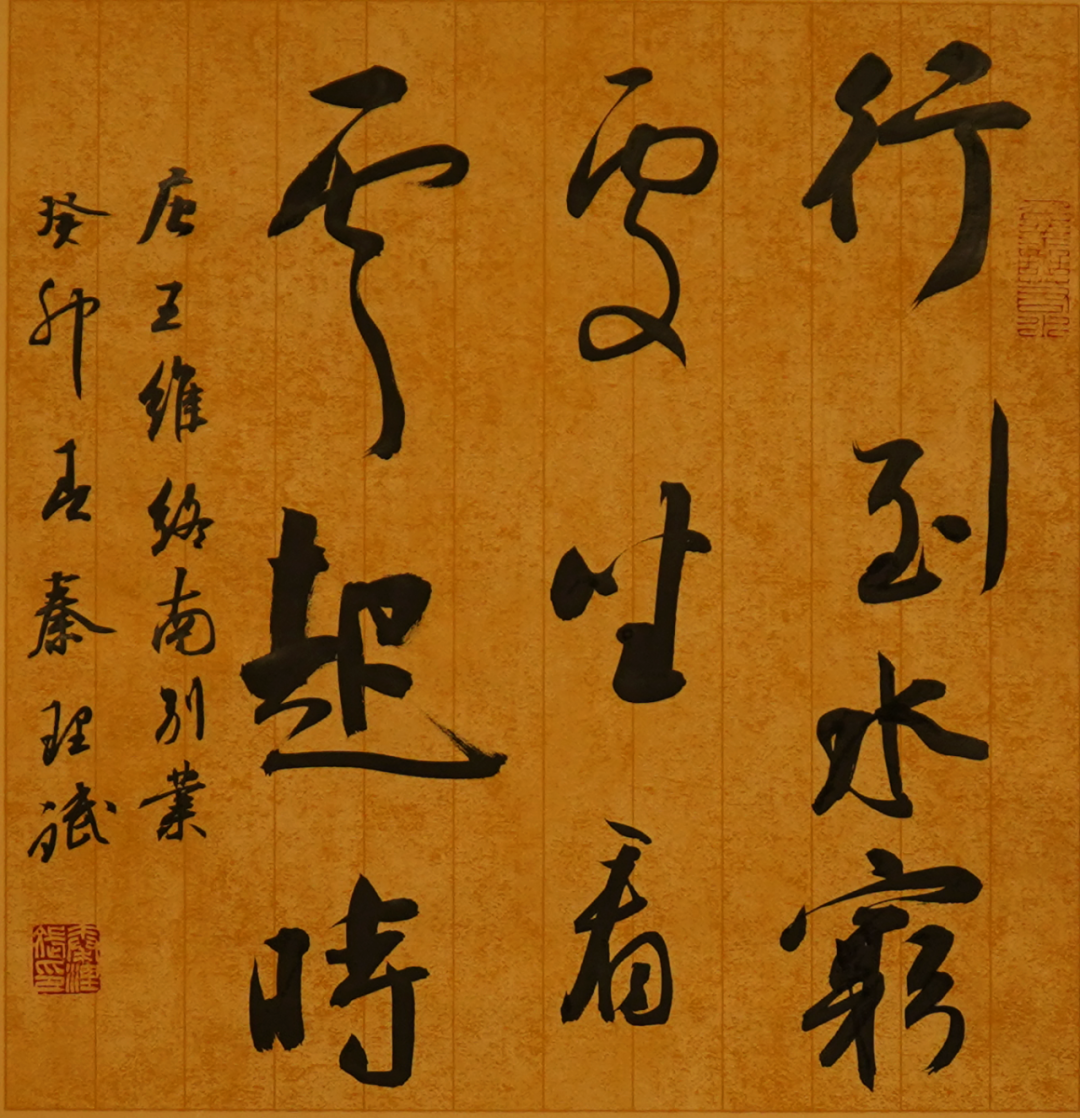 行到水窮
處坐看
雲起時
唐王維終南別業
癸卯春秦理斌